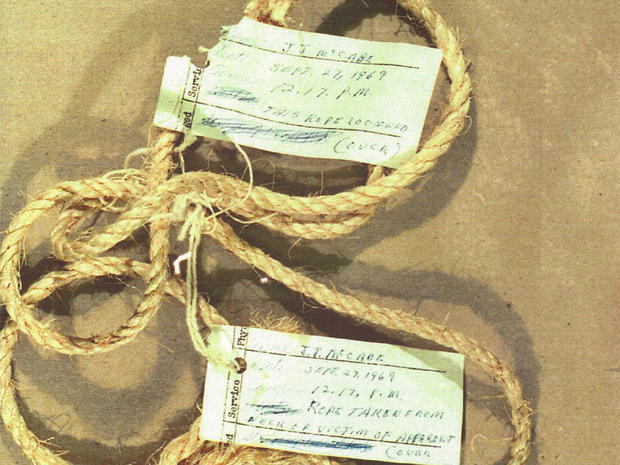 J.J. McCABE
SEPT. 27, 1969
12.17. P.M.
THIS ROPE LOOSENED
(OVER)
Service
J.J. McCABE
SEPT. 27, 1969
12.17. P.M.
ROPE TAKEN FROM
NECK OF VICTIM OF APPARENT
(OVER
Service
Phys